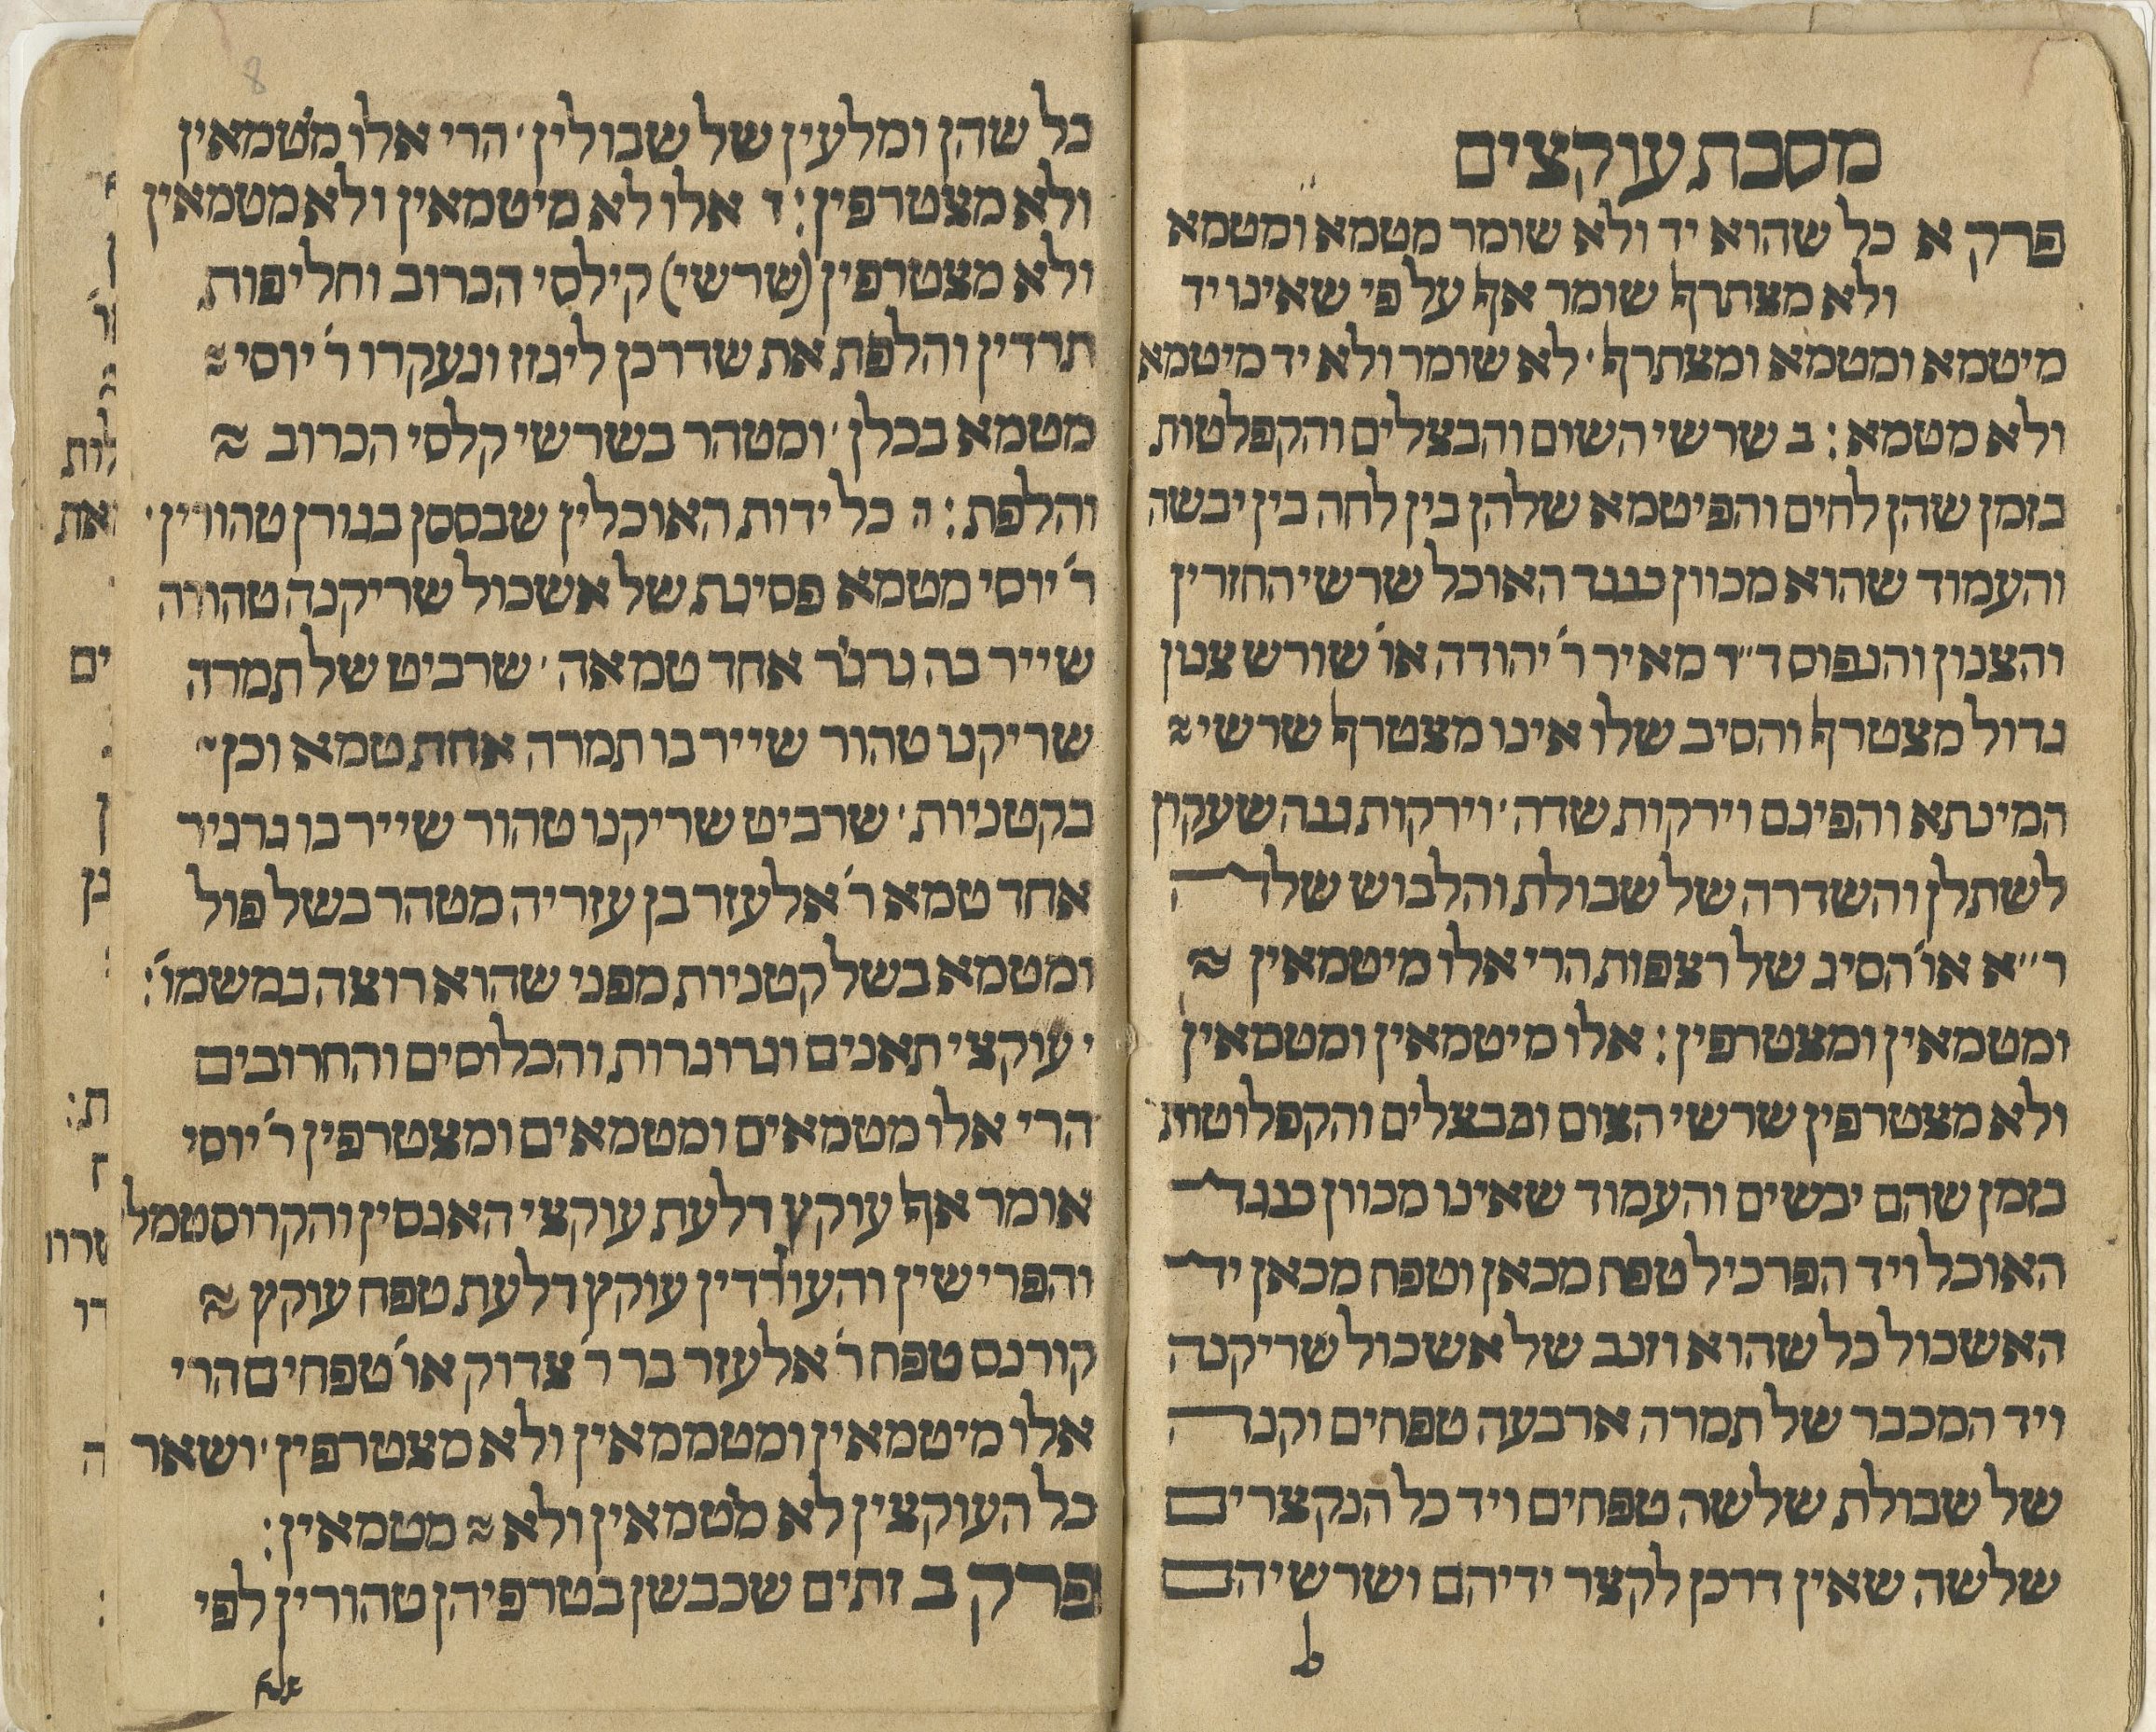 מסכת עוקצים
פרק א כל שהוא יד ולא שומר מטמא ומטמא
ולא מצתרף שומר אף על פי שאינו יד
מיטמא ומטמא ומצתרף ׳ לא שומר ולא יד מיטמא
ולא מטמא : ב שרשי השום והבצלים והקפלטות
בזמן שהן לחים והפיטמא שלהן בין לחה בין יבשה
והעמוד שהוא מכוון כנגד האוכל שרשי החזרין
והצנון והנפוס ד״ר מאיר ר׳ יהודה או׳ שורש צנון
גדול מצטרף והסיב שלו אינו מצטרף שרשי
המינתא והפיגם וירקות שדה ׳ וירקות גנה שעקרן
לשתלן והשדרה של שבולת והלבוש שלה
ר״א או׳ הסיג של רצפות הרי אלו מיטמאין
ומטמאין ומצטרפין : אלו מיטמאין ומטמאין
ולא מצטרפין שרשי הצום ומבצלים והקפלוטות
בזמן שהם יבשים והעמוד שאינו מכוון כנגד
האוכל ויד הפרכיל טפח מכאן וטפח מכאן יד
האשכול כל שהוא וזנב של אשכול שריקנה
ויד המכבר של תמרה ארבעה טפחים וקנה
של שבולת שלשה טפחים ויד כל הנקצרים
שלשה שאין דרכן לקצר ידיהם ושרשיהם
כל שהן ומלעין של שבולין ׳ הרי אלו מטמאין
ולא מצטרפין : ד אלו לא מיטמאין ולא מטמאין
ולא מצטרפין (שרשי) קילסי הכרוב וחליפות
תרדין והלפת את שדרכן ליגזז ונעקרו ר׳ יוסי
מטמא בכלן ׳ ומטהר בשרשי קלסי הכרוב
והלפת : ה כל ידות האוכלין שבססן בגורן טהורין ׳
ר׳ יוסי מטמא פסיגת של אשכול שריקנה טהורה
שייר בה גרגר אחד טמאה ׳ שרביט של תמרה
שריקנו טהור שייר בו תמרה אחת טמא וכן
בקטניות ׳ שרביט שריקנו טהור שייר בו גרגיר
אחד טמא ר׳ אלעזר בן עזריה מטהר בשל פול
ומטמא בשל קטניות מפני שהוא רוצה במשמו׳ :
י עוקצי תאנים וגרוגרות והכלוסים והחרובים
הרי אלו מטמאים ומטמאים ומצטרפין ר׳ יוסי
אומר אף עוקץ דלעת עוקצי האגסין והקרוסטמל
והפרישין והעורדין עוקץ דלעת טפח עוקץ
קורנס טפח ר׳ אלעזר בר ר׳ צדוק או׳ טפחים הרי
אלו מיטמאין ומטממאין ולא מצטרפין ׳ ושאר
כל העוקצין לא מטמאין ולא מטמאין :
פרק ב זתים שכבשן בטרפיהן טהורין לפי